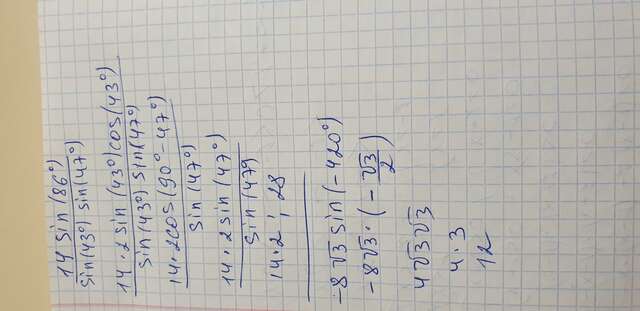 14 sin(86°)
sin(43°) sin(47°)
14·2 sin(43°)cos(43°)
sin(43°) sin(47°)
14·2cos(90°-47°)
sin(47°)
14·2 sin(47°)
sin(479
14·2; 28
-8√3 sin(-420°)
-8√3·(-√3/2)
4√3√3
4·3
12